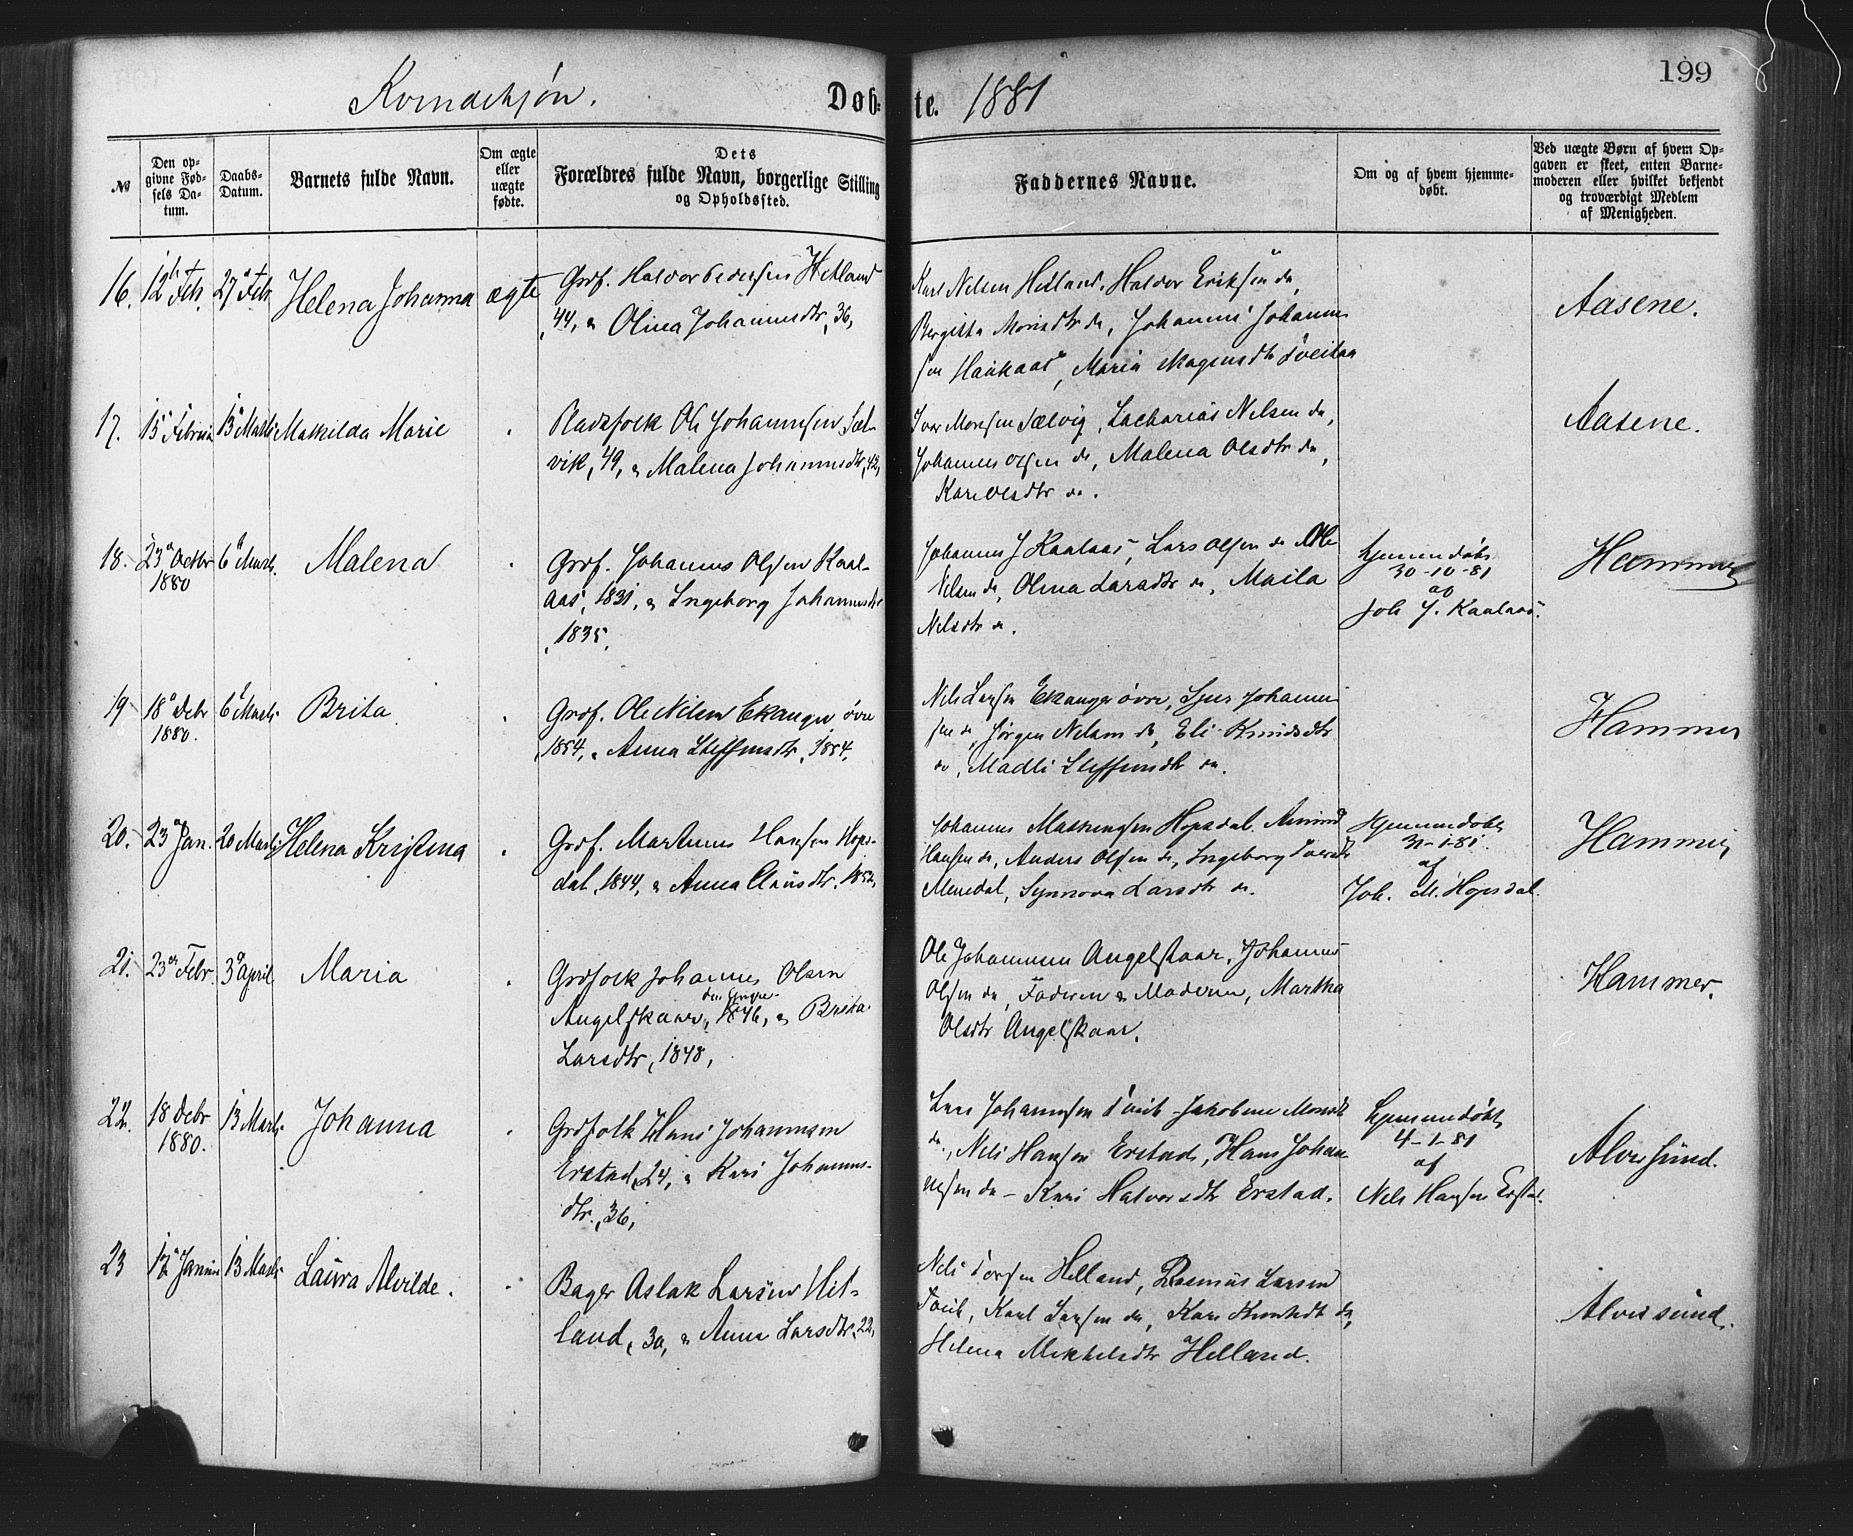 Kvindekjøn. Døb- te. 1881 199
No
Den opgivne Fødsels Datum.
Daabs-Datum.
Barnets fulde Navn.
Om ægte eller uægte fødte.
Dets
Forældres fulde Navn, borgerlige Stilling
og Opholdssted.
Faddernes Navne.
Om og af hvem hjemmedøbt.
Ved uægte Børn af hvem Opgaven er skeet, enten Barnemoderen eller hvilket bekjendt og troværdigt Medlem af Menigheden.
16. 12 Feb. 27 Febr Helena Johanna ægte Grdf. Halvor Pedersen Hetland Karl Nilsen Hetland, Halvor Eriksen do, Aasene.
44, & Olina Johannesdtr, 36, Bergitta Monsdtr do, Johannes Johannes
sen Haukaas, Maria Magnusdtr Tveitaa
17. 15 Februar 13 Marts Mathilda Marie Pladsfolk Ole Johannesen Sæl- Iver Monsen Sælvig, Zacharias Nilsen do, Aasene.
vik, 49, & Malena Johannesdtr, 42, Johannes Olsen do, Malena Olsdtr do,
Kari Olsdtr do.
18. 23 Octbr 1880 6 Marts. Malena Grdf. Johannes Olsen Kaal- Johannes J Kaalaas, Lars Olsen do Ole Hjemmedøbt Hammer
aas, 1831, & Ingeborg Johannesdtr Nilsen do, Olina Larsdtr do, Maila 30-10-81
1835, Nilsdtr do. av
Joh J. Kaalaas.
19 18 Debr 1880. 6 Marts Brita Grdf. Ole Nilsen Ekanger øvre Nils Larsen Ekanger øvre, Sjur Johanne- Hammer
1854, & Anna Steffensdtr, 1854, sen do, Jørgen Nilsen do, Eli Knudsdtr
do, Madli Steffensdtr do.
20. 23 Jan. 20 Marts Helena Kristina Grdf. Martinus Hansen Hops- Johannes Mathiugsen Hopsdal, Hjemmedøbt Hammer
dal, 1844, & Anna Clausdtr, 1852, Hansen do, Anders Olsen do, Ingeborg 31-1-81
Menedal, Synnova Larsdtr do. af
Joh. M. Hopsdal.
21. 23 Febr. 3 April Maria Grdfolk Johannes Olsen Ole Johannesen Angelskaar, Johannes Hammer.
Angelskaar, 1846, & Brita Olsen do, Faderen & Moderen, Martha
Larsdtr, 1848, Olsdtr Angelskaar.
22. 18 Debr 1880. 13 Marts Johanna Grdfolk Hans Johannesen Lars Johannesen Tveit Jakobine Monsdtr Hjemmedøbt Alversund.
Erstad, 24, & Kari Johannes- do, Nils Hansen Erstad, Hans Johan 4-1-81
dtr., 36, nesen do - Kari Halvorsdtr Erstad. af
Nils Hansen Erstad.
23 12 Januar 13 Marts Laura Alvilde. Bager Aslak Larsen Hel- Nils Helland, Rasmus Larsen Alversund.
land, 30, & Anna Larsdtr, 22, Tveit, Karl Larsen do, Kari do,
Helena Mikkelsdtr Helland.